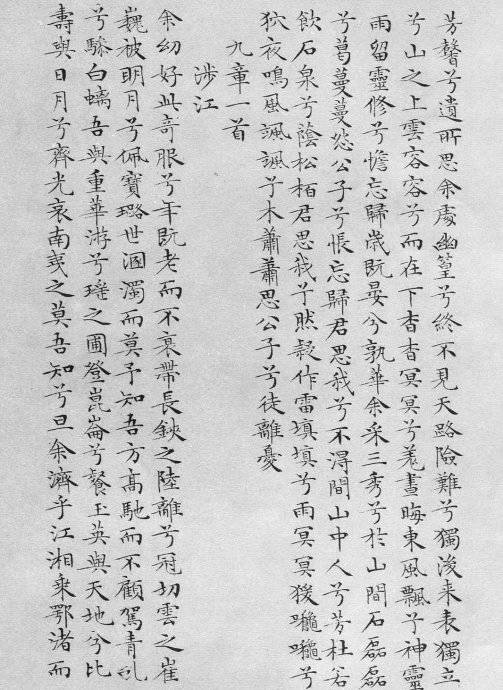 芳馨兮遺所思余處幽篁兮終不見天路險難兮獨後来表獨立
兮山之上雲容容兮而在下杳杳冥冥兮羌晝晦東風飄兮神靈
雨留靈修兮憺忘歸歳既晏兮孰華余采三秀兮於山間石磊磊
兮葛蔓蔓怨公子兮悵忘歸君思我兮不淂間山中人兮芳杜若
飲石泉兮蔭松栢君思我兮然疑作雷填填兮雨冥冥猨啾啾兮
狖夜鳴風颯颯兮木蕭蕭思公子兮徒離憂
九章一首
涉江
余幼好此竒服兮年既老而不衰帶長鋏之陸離兮冠切雲之崔
巍被明月兮佩寶璐世溷濁而莫予知吾方髙馳而不顧駕青虬
兮驂白螭吾與重華游兮瑤之圃登崑崙兮餐玉英與天地兮比
壽與日月兮齊光哀南夷之莫吾知兮旦余濟乎江湘乗鄂渚而